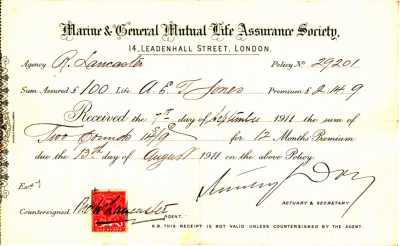 Marine & General Mutual Life Assurance Society,
14, LEADENHALL STREET, LONDON.
Agency R. Lancaster Policy No 29201
Sum Assured £ 100 Life A E T Jones Premium £ 2.14.9
Received the 7th day of September 1911 the sum of
Two Pounds 14/9d for 12 Months Premium
due the 13th day of August 1911 on the above Policy
Exd
ACTUARY & SECRETARY
Countersigned Lancaster
AGENT.
N.B. THIS RECEIPT IS NOT VALID UNLESS COUNTERSIGNED BY THE AGENT.